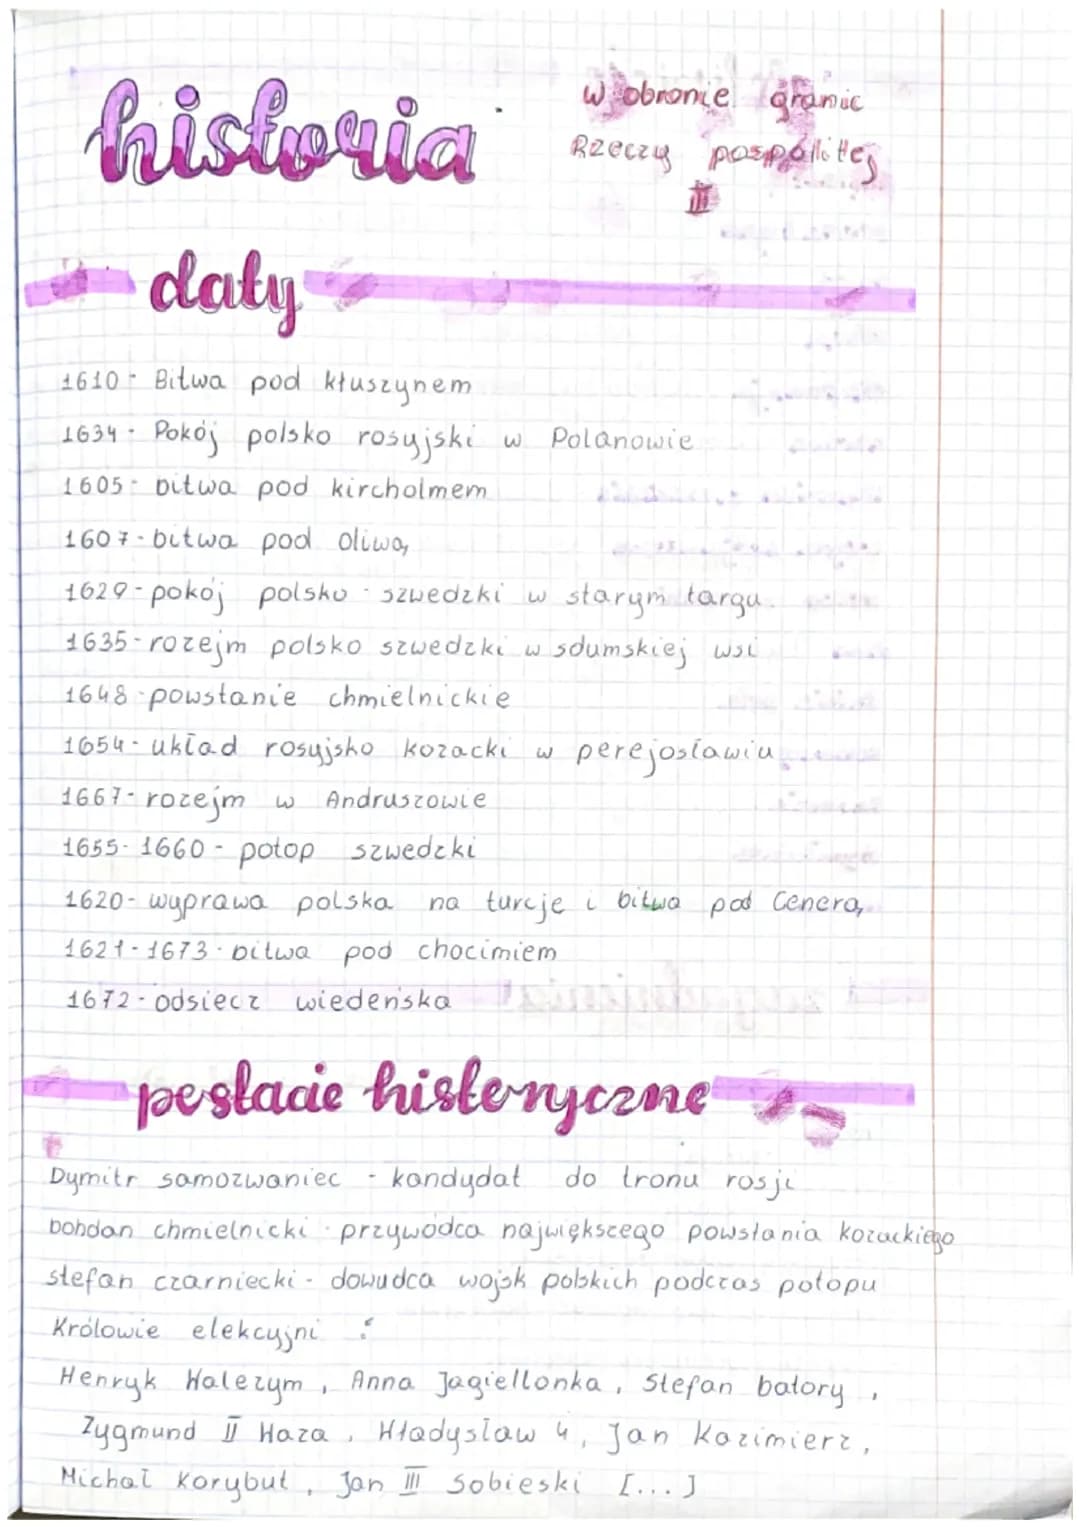 historia
w obronie granic
Rzeczy pospolitej
III
daty
1610 - Bitwa pod kłuszynem
1634 - Pokój polsko rosyjski w Polanowie
1605 - bitwa pod kircholmem
1607 - bitwa pod Oliwą
1629 - pokój polsko - szwedzki w starym targu
1635 - rozejm polsko szwedzki w sdumskiej wsi
1648 - powstanie chmielnickie
1654 - układ rosyjsko kozacki w perejosławiu
1667 - rozejm w Andruszowie
1655 - 1660 - potop szwedzki
1620 - wyprawa polska na turcje i bitwa pod Cenerą
1621 - 1673 - bitwa pod chocimiem
1672 - odsiecz wiedeńska
postacie historyczne
Dymitr samozwaniec - kandydat do tronu rosji
bohdan chmielnicki - przywódca największego powstania kozackiego
stefan czarniecki - dowudca wojsk polskich podczas potopu
Królowie elekcyjni :
Henryk Walezym, Anna Jagiellonka, Stefan batory,
Zygmund II Waza, Władysław 4, Jan Kazimierz,
Michał Korybut, Jan III Sobieski [...]